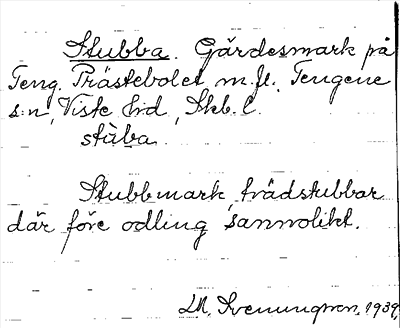 Stubba. Gärdesmark på
Teng. Prästebolet m.fl. Tengene
s:n, Viste hd, Skb. l.
stùba
Stubbmark, trädstubbar
där före odling sannolikt.
1939.